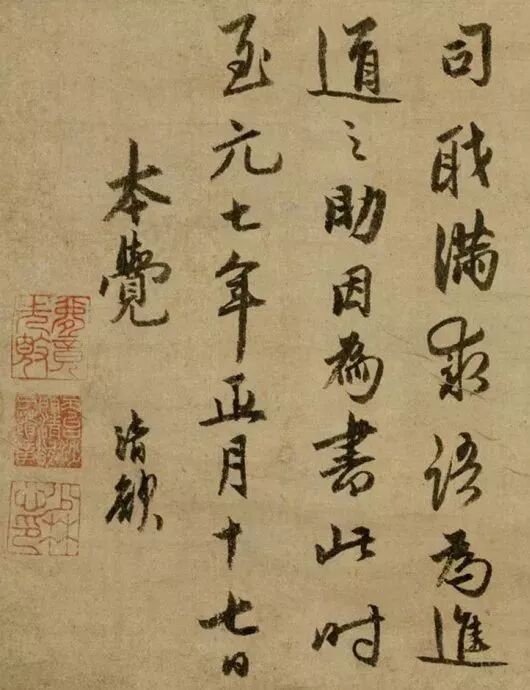 司職滿求語為進
道之助因為書此时
至元七年正月十七日
本覺 清欲